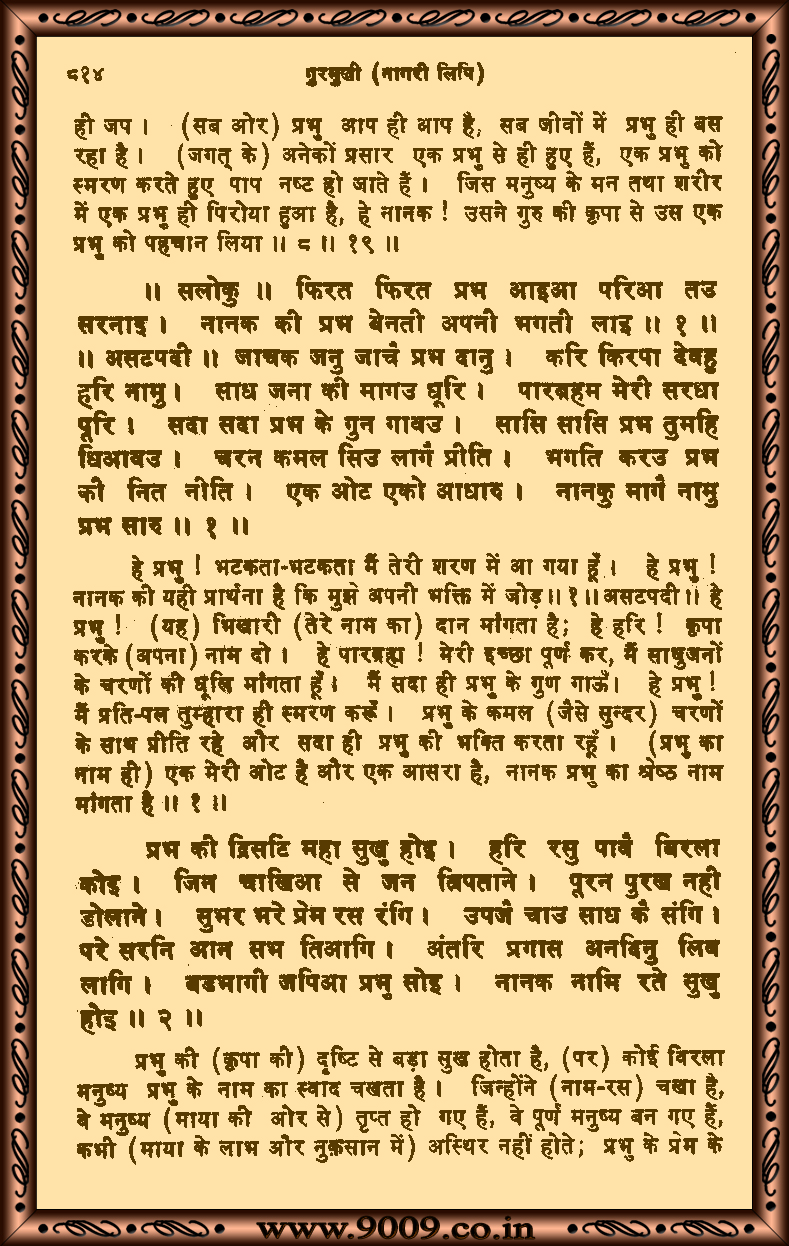 ८१४ गुरमुखी (नागरी लिपि)
ही जप । (सब ओर) प्रभु आप ही आप है, सब जीवों में प्रभु ही बस
रहा है । (जगत् के) अनेकों प्रसार एक प्रभु से ही हुए हैं, एक प्रभु को
स्मरण करते हुए पाप नष्ट हो जाते हैं । जिस मनुष्य के मन तथा शरीर
में एक प्रभु ही पिरोया हुआ है, हे नानक ! उसने गुरु की कृपा से उस एक
प्रभु को पहचान लिया ॥ ८ ॥ १९ ॥
॥ सलोकु ॥ फिरत फिरत प्रभ आइआ परिआ तउ
सरनाइ । नानक की प्रभ बेनती अपनी भगती लाइ ॥ १ ॥
॥ असटपदी ॥ जाचक जनु जाचै प्रभ दानु । करि किरपा देवहु
हरि नामु । साध जना की मागउ धूरि । पारब्रहम मेरी सरधा
पूरि । सदा सदा प्रभ के गुन गावउ । सासि सासि प्रभ तुमहि
धिआवउ । चरन कमल सिउ लागै प्रीति । भगति करउ प्रभ
की नित नीति । एक ओट एको आधारु । नानकु मागै नामु
प्रभ सारु ॥ १ ॥
हे प्रभु ! भटकता-भटकता मैं तेरी शरण में आ गया हूँ । हे प्रभु !
नानक की यही प्रार्थना है कि मुझे अपनी भक्ति में जोड़ ॥ १ ॥ असटपदी ॥ हे
प्रभु ! (यह) भिखारी (तेरे नाम का) दान मांगता है; हे हरि ! कृपा
करके (अपना) नाम दो । हे पारब्रह्म ! मेरी इच्छा पूर्ण कर, मैं साधुजनों
के चरणों की धूलि मांगता हूँ । मैं सदा ही प्रभु के गुण गाऊँ । हे प्रभु !
मैं प्रति-पल तुम्हारा ही स्मरण करूँ । प्रभु के कमल (जैसे सुन्दर) चरणों
के साथ प्रीति रहे और सदा ही प्रभु की भक्ति करता रहूँ । (प्रभु का
नाम ही) एक मेरी ओट है और एक आसरा है, नानक प्रभु का श्रेष्ठ नाम
मांगता है ॥ १ ॥
प्रभ की द्रिसटि महा सुखु होइ । हरि रसु पावै बिरला
कोइ । जिन चाखिआ से जन त्रिपताने । पूरन पुरख नही
डोलाने । सुभर भरे प्रेम रस रंगि । उपजै चाउ साध कै संगि ।
परे सरनि आन सभ तिआगि । अंतरि प्रगास अनदिनु लिव
लागि । बडभागी जपिआ प्रभु सोइ । नानक नामि रते सुखु
होइ ॥ २ ॥
प्रभु की (कृपा की) दृष्टि से बड़ा सुख होता है, (पर) कोई विरला
मनुष्य प्रभु के नाम का स्वाद चखता है । जिन्होंने (नाम-रस) चखा है,
वे मनुष्य (माया की ओर से) तृप्त हो गए हैं, वे पूर्ण मनुष्य बन गए हैं,
कभी (माया के लाभ और नुक़सान में) अस्थिर नहीं होते; प्रभु के प्रेम के
www.9009.co.in